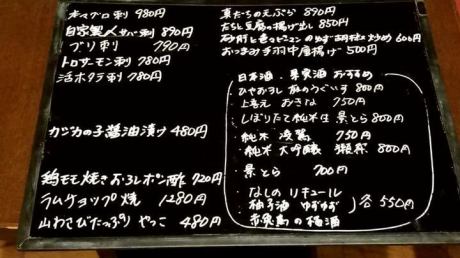 本マグロ刺 980円
自家製〆サバ刺 890円
ブリ刺 790円
トロサーモン刺 780円
活ホタテ刺 780円
カジカの子醤油漬け 480円
鶏モモ焼き おろしポン酢 720円
ラムチョップ焼 1280円
山わさびたっぷり やっこ 480円
真だちの天ぷら 890円
たちと豆腐の揚げ出し 850円
砂肝と青々ピーマンのゆず胡椒炒め 600円
おつまみ手羽中唐揚げ 500円
日本酒・果実酒 おすすめ
ひやおろし 800円
750円
しぼりたて純米生 景とら 800円
・純米 750円
・純米 大吟醸 獺祭 800円
・景とら 700円
なしの リキュール
柚子酒 ゆずゆず
の梅酒
各 550円